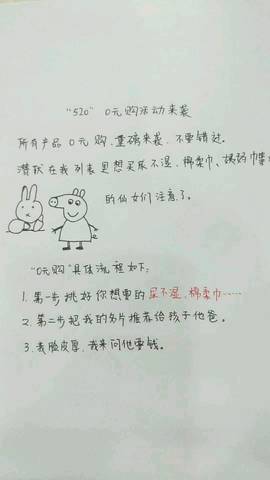 "520" 0元购活动来袭
所有产品0元购、重磅来袭、不要错过。
潜伏在我列表里想买尿不湿、棉柔巾、
的仙女们注意了。
"0元购"具体流程如下:
1.第一步挑好你想要的尿不湿、棉柔巾……
2.第二步把我的名片推荐给孩子他爸。
3.我脸皮厚、我来问他要钱。